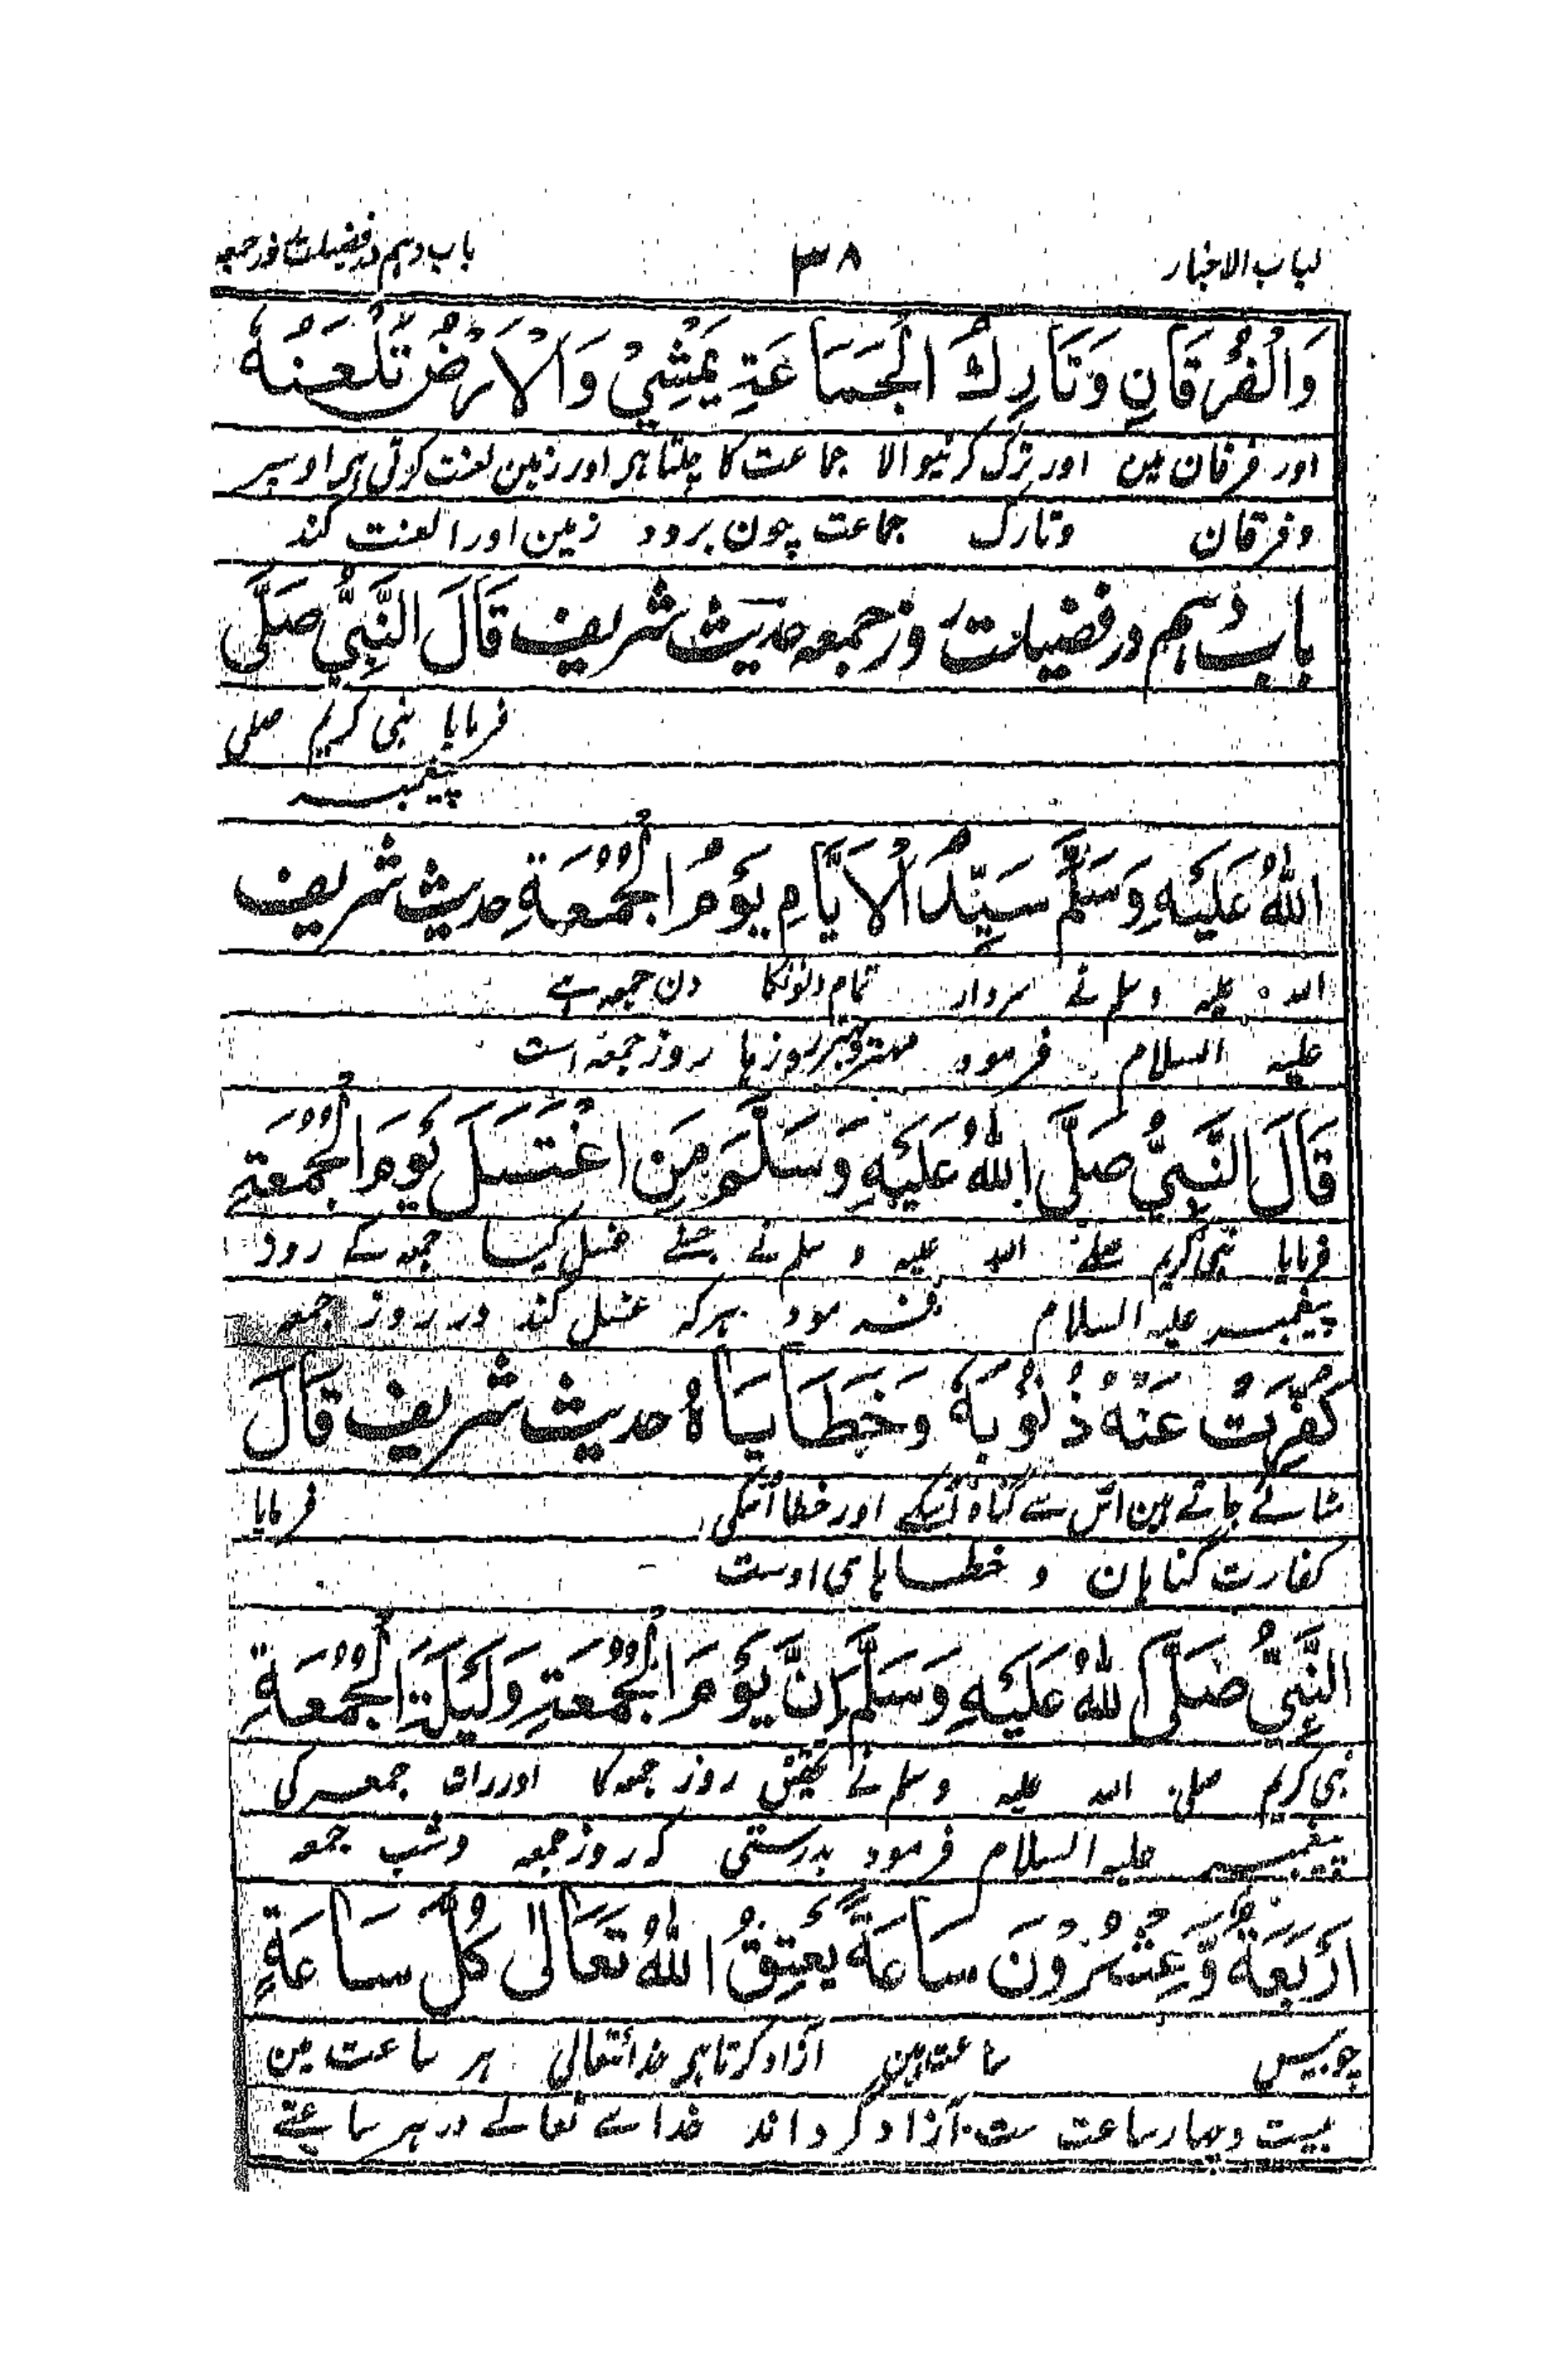 لباب الاخبار ۳۸ باب دہم در فضیلت روز جمعہ
وَالْفُرْقَانِ وَتَارِكُ الْجَمَاعَةِ يَمْشِيْ وَالْاَرْضُ تَلْعَنُهٗ
اور فرقان مین اور ترک کرنیوالا جماعت کا چلتا ہی اور زمین لعنت کرتی ہی اوسپر
وفرقان وتارک جماعت چون برود زمین اورا لعنت کند
باب دہم در فضیلت روز جمعہ حدیث شریف قَالَ النَّبِيُّ صَلَّى
فرمایا نبی کریم صلی
پیغمبر
اللهُ عَلَيْهِ وَسَلَّمَ سَيِّدُ الْاَيَّامِ يَوْمُ الْجُمُعَةِ حدیث شریف
اللہ علیہ وسلم نے سردار تمام دنونکا دن جمعہ ہے
علیہ السلام فرمود مہتر وبہتر روزہا روز جمعہ است
قَالَ النَّبِيُّ صَلَّى اللهُ عَلَيْهِ وَسَلَّمَ مَنِ اغْتَسَلَ يَوْمَ الْجُمُعَةِ
فرمایا نبی کریم صلے اللہ علیہ وسلم نے جسنے غسل کیا جمعہ کے روز
پیغمبر علیہ السلام فرمود ہرکہ غسل کند در روز جمعہ
كُفِّرَتْ عَنْهُ ذُنُوْبُهٗ وَخَطَايَاهُ حدیث شریف قَالَ
مٹائے جاتے ہین اس سے گناہ اُسکے اور خطا اُسکی فرمایا
کفارت گناہان و خطاہای اوست
النَّبِيُّ صَلَّى اللهُ عَلَيْهِ وَسَلَّمَ اِنَّ يَوْمَ الْجُمُعَةِ وَلَيْلَةَ الْجُمُعَةِ
نبی کریم صلی اللہ علیہ وسلم نے تحقیق روز جمعہ کا اور رات جمعہ کی
پیغمبر علیہ السلام فرمود بدرستی کہ روز جمعہ وشب جمعہ
اَرْبَعَةٌ وَّعِشْرُوْنَ سَاعَةً يُعْتِقُ اللهُ تَعَالٰى كُلَّ سَاعَةٍ
چوبیس ساعت ہین آزاد کرتا ہی خدا تعالی ہر ساعت مین
بیست وچہار ساعت ست آزاد گرداند خداے تعالے در ہر ساعتے